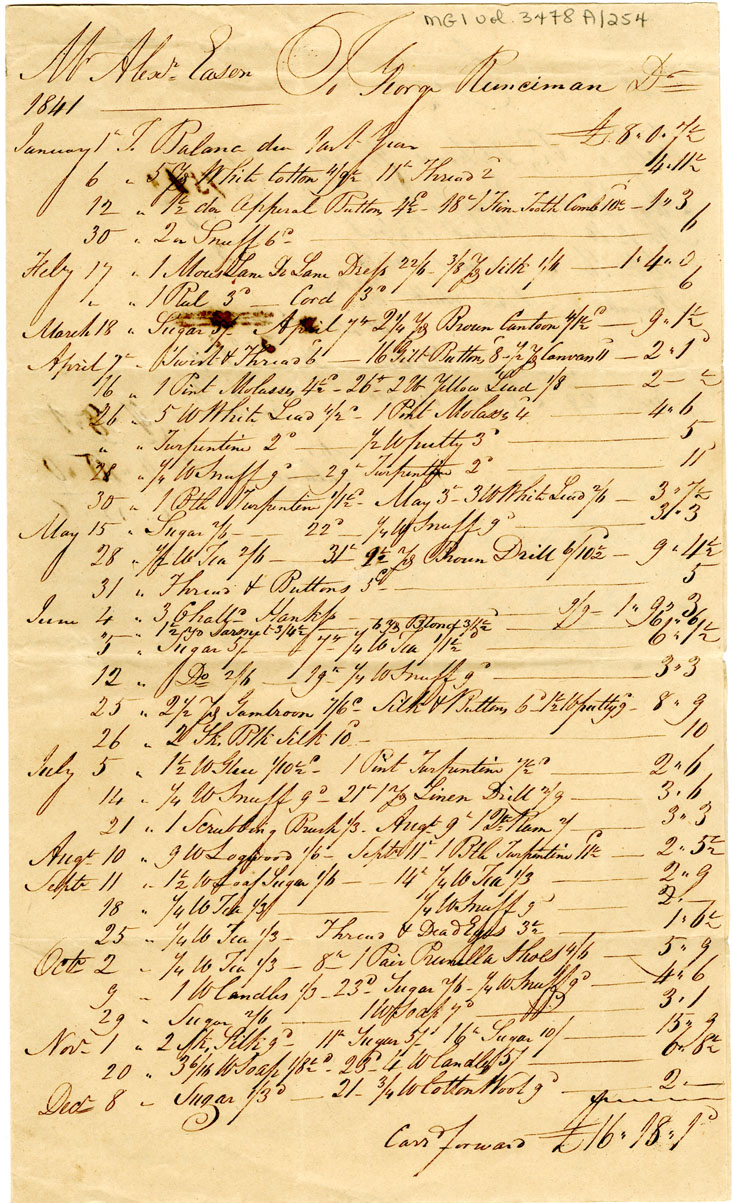 MG1 Vol. 3478 A/254
Mr Alexr Eason To George Runciman Dr
1841
January 1st To Balance due last Year £8"0"7½
6 " 5 Yds White Cotton 4/9½ 11th Thread 2d 4"11½
12 " 1½ doz Apperal Buttons 4½d - 18th 1 Fine Tooth Comb 10½ - 1"3
30 " 2 oz Snuff 6d 6
Feby 17 " 1 Mous Lane De Lane Dress 22/6 - 3/8 Yd Silk 1/6 1"4"0
" " 1 Reel 3d Cord 3d 6
March 18 " Sugar 5/ April 7th 2¼ Yds Brown Cantoon 4/1½d - 9"1½
April 7th " Twist & Thread 6d - 16 Gilt Buttons 8 - ½ Yd Canvan 11 - 2"1d
16 " 1 Pint Molasses 4½d - 26th 2 lb Yellow Lead 1/8 2-½
26 " 5 lb White Lead 4/2d - 1 Pint Molasses 4d 4"6
" " Turpentine 2d ½ lb putty 3d 5
28 " ¼ lb Snuff 9d 29th Turpentine 2d 11
30 " 1 Btl Turpentine 1/1½d - May 3d - 3 lb White Lead 2/6 - 3"7½
May 15 " Sugar 2/6 22d ¼ lb Snuff 9d 3"3
28 " lb Tea 2/6 31st Yds Brown Drill 6/10½ 9"4½
31 " Thread & Buttons 5d 5
June 4 " 3 Hankfs 9/9 - 1"9"3
" 1½ Yd Sarsnet 3/4½ 3/1½ 6"6
5 " Sugar 5/ 7th ¼ lb Tea 1/1½ 6"1½
12 " Do 2/6 19th ¼ lb Snuff 9d 3"3
25 " 2½ Yds Gambroon 7/6d Silk & Buttons 6d 1½ lb putty 9d - 8"9
26 " 2 Sks Blk Silk 10d 10
July 5 " 1½ lb Glue 1/10½d - 1 Pint Turpentine 7½d 2"6
14 " ¼ lb Snuff 9d - 21st 1 Yd Linen Drill 2/9 3"6
21 " 1 Scrubbing Brush 1/3 - Augt 9th 1 Rum 2/ 3"3
Augt 10 " 9 lb Logwood 1/6 - Septr 11th - 1 Btl Turpentine 11½ 2"5½
Septr 11 " 1½ lb Loaf Sugar 1/6 - 14th ¼ lb Tea 1/3 2"9
18 " ¼ lb Tea 1/3 ¼ lb Snuff 9d 2"-
25 " ¼ lb Tea 1/3 - Thread & Dead Eyes 3½ 1"6½
Octr 2 " ¼ lb Tea 1/3 - 8th 1 Pair Prunella Shoes 4/6 5"9
9 " 1 lb Candles 1/3 - 23d Sugar 2/6 - ¼ lb Snuff 9d 4"6
29 " Sugar 2/6 1 lb Soap 7d 3"1
Novr 1 " 2 Sk. Silk 9d - 11th Sugar 5/ - 16th Sugar 10/ 15"9
20 " 3 6/16 lb Soap 1/8½d - 26th - 4 lb Candles 5/ 6"8½
Decr 8 " Sugar 1/3d - 21 - ¾ lb Cotton Wool 9d 2"-
Carrd forward £16"18"1d